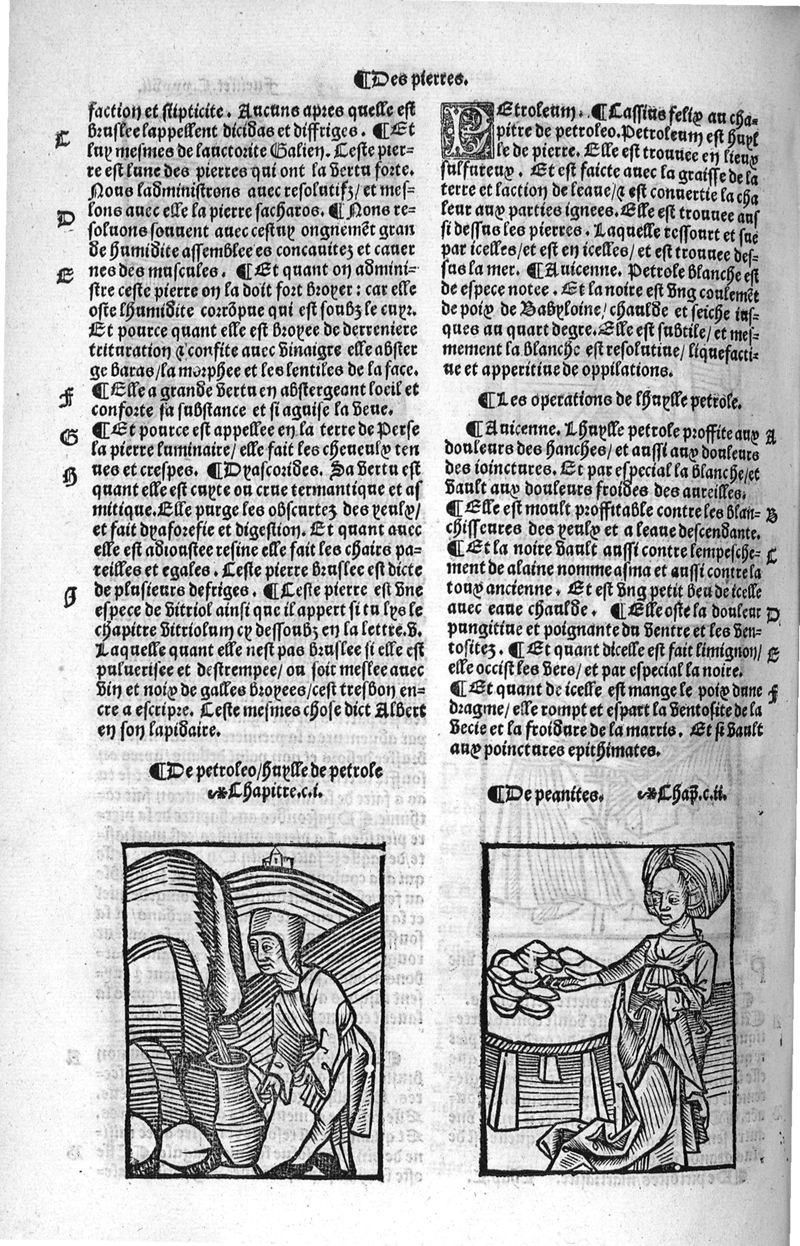 ¶Des pierres.
faction et stipticite. Aucuns apres quelle est
bruslee lappellent dicidas et diffriges. ¶Et
C
luy mesmes de lauctorite Galien. Ceste pier-
re est lune des pierres qui ont la vertu forte.
Nous ladministrons avec resolutifz/et mes-
lons avec elle la pierre sacharos. ¶Nons re-
D
soluons souvent avec cestuy ongnemēt gran
de humidite assemblee es concauitez et cauer
nes des muscules. ¶Et quant on admini-
E
stre ceste pierre on la doit fort broyer: car elle
oste lhumidite corrōpue qui est soubz le cuyr.
Et pource quant elle est broyee de derreniere
trituration ⁊ confite auec vinaigre elle abster
ge baras/la morphee et les lentiles de la face.
F
¶Elle a grande vertu en abstergeant loeil et
conforte sa substance et si aguise la veue.
G
¶Et pource est appellee en la terre de Perse
la pierre luminaire/elle fait les cheueulx ten
H
ues et crespes. ¶Dyascorides. Sa vertu est
quant elle est cuyte ou crue termantique et as
mitique. Elle purge les obscurtez des yeulx/
et fait dyaforesie et digestion. Et quant auec
elle est adioustee resine elle fait les chairs pa-
reilles et egales. Ceste pierre bruslee est dicte
J
de plusieurs defriges. ¶Ceste pierre est vne
espece de vitriol ainsi que il appert si tu lys le
chapitre Vitriolum cy dessoubz en la lettre.v.
Laquelle quant elle nest pas bruslee si elle est
puluerisee et destrempee/ou soit meslee auec
vin et noix de galles broyees/cest tresbon en-
cre a escripre. Ceste mesmes chose dict Albert
en son lapidaire.
¶De petroleo/huylle de petrole
Chapitre.c.i.
PEtroleum. ¶Cassius felix au cha-
pitre de petroleo. Petroleum est huyl
le de pierre. Elle est trouuee en lieux
sulfureux. Et est faicte auec la graisse de la
terre et laction de leaue/⁊ est conuertie la cha
leur aux parties ignees. Elle est trouuee aus
si dessus les pierres. Laquelle ressourt et sue
par icelles/et est en icelles/et est trouuee des-
sus la mer. ¶Auicenne. Petrole blanche est
de espece notee. Et la noire est vng coulemēt
de poix de Babyloine/chaulde et seiche ius-
ques au quart degre. Elle est subtile/et mes-
mement la blanche est resolutiue/liquefacti-
ue et apperitiue de oppilations.
¶Les operations de lhuylle petrole.
¶Auicenne. Lhuylle petrole proffite aux
A
douleurs des hanches/et aussi aux douleurs
des ioinctures. Et par especial la blanche/et
vault aux douleurs froides des aureilles.
¶Elle est moult proffitable contre les blan-
B
chisseures des yeulx et a leaue descendante.
¶Et la noire vault aussi contre lempesche-
C
ment de alaine nomme asma et aussi contre la
toux ancienne. Et est vng petit beu de icelle
auec eaue chaulde. ¶Elle oste la douleur
D
pungitiue et poignante du ventre et les ven-
tositez. ¶Et quant dicelle est fait limignon/
E
elle occist les vers/et par especial la noire.
¶Et quant de icelle est mange le poix dune
F
dragme/elle rompt et espart la ventosite de la
vecie et la froidure de la marris. Et si vault
aux poinctures epithimates.
¶De peanites. Chap.c.ii.